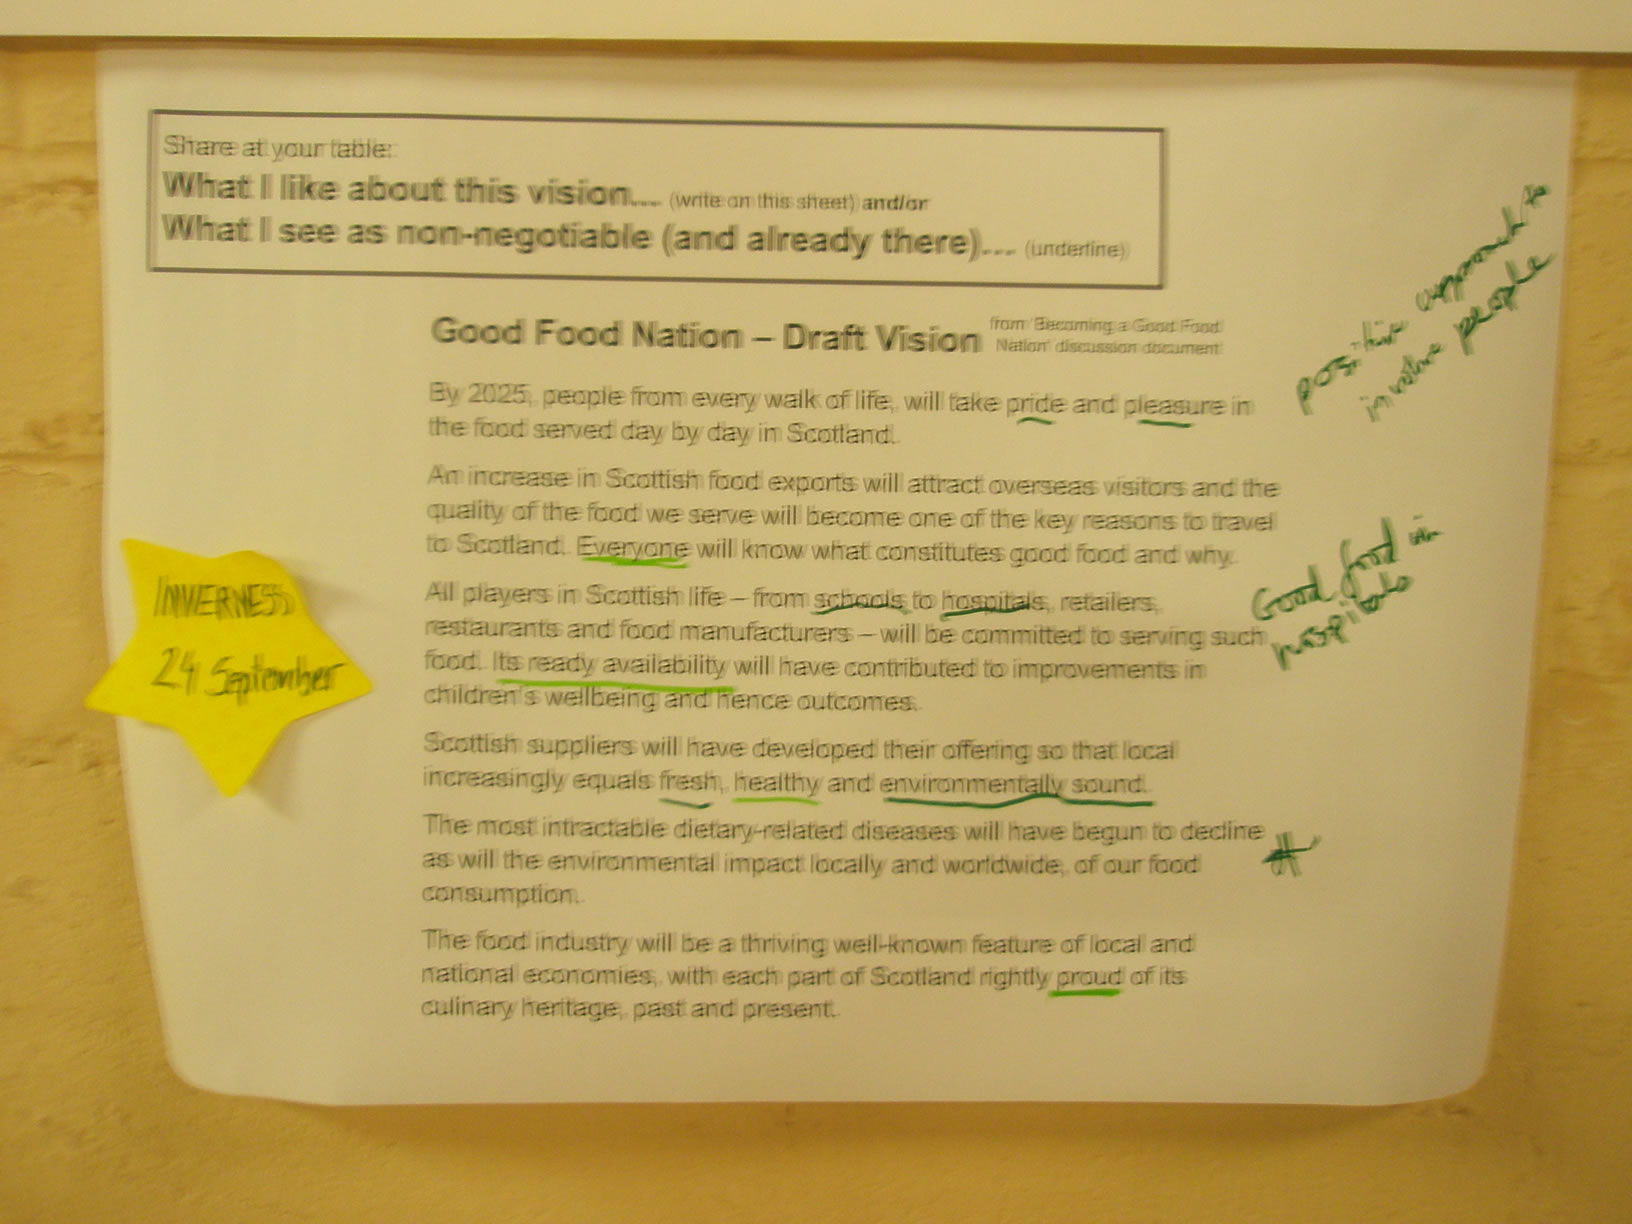 Share at your table:
What I like about this vision... (write on this sheet) and/or
What I see as non-negotiable (and already there)... (underline)
Good Food Nation – Draft Vision
from 'Becoming a Good Food
Nation' discussion document
By 2025, people from every walk of life, will take pride and pleasure in
the food served day by day in Scotland.
An increase in Scottish food exports will attract overseas visitors and the
quality of the food we serve will become one of the key reasons to travel
to Scotland. Everyone will know what constitutes good food and why.
All players in Scottish life – from schools to hospitals, retailers,
restaurants and food manufacturers – will be committed to serving such
food. Its ready availability will have contributed to improvements in
children's wellbeing and hence outcomes.
Scottish suppliers will have developed their offering so that local
increasingly equals fresh, healthy and environmentally sound.
The most intractable dietary-related diseases will have begun to decline
as will the environmental impact locally and worldwide, of our food
consumption.
The food industry will be a thriving well-known feature of local and
national economies, with each part of Scotland rightly proud of its
culinary heritage, past and present.
positive approach to
involve people
Good food in
hospitals
INVERNESS
24 September